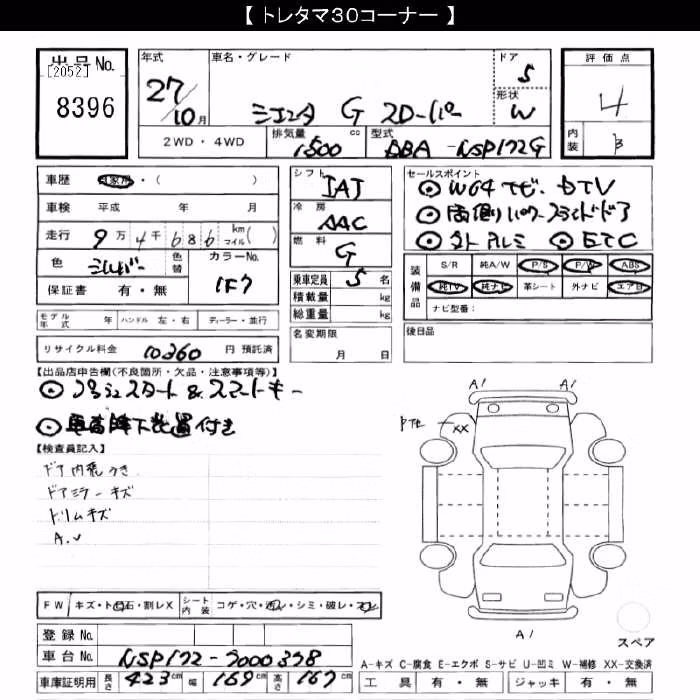 【 トレタマ30コーナー 】
出品 No.
[2052]
8396
年式
27/10月
車名・グレード
シエンタ G 2D-ルパー
ドア
5
形状
W
評価点
4
内装
B
2WD・4WD
排気量
1500 cc
型式
DBA-NSP172G
車歴 自家用・( )
車検 平成 年 月
走行 9万4千686 km マイル( )
色 シルバー 色替 カラーNo. 1F7
保証書 有・無
シフト
IAT
冷房
AAC
燃料
G
乗車定員 5 名
積載量 kg
総重量 kg
セールスポイント
◎W64ナビ、DTV
◎両側パワースライドドア
◎外アルミ ◎ETC
装備品
S/R 純A/W P/S P/W ABS
純TV 純ナビ 革シート 外ナビ エアB
ナビ型番:
モデル年式 年 ハンドル 左・右 ディーラー・並行
名変期限
月 日
後日品
リサイクル料金 10260 円 預託済
【出品店申告欄(不良箇所・欠品・注意事項等)】
◎プッシュスタート&スマートキー
◎車高降下装置付き
【検査員記入】
ドア内張うき
ドアミラーキズ
トリムキズ
A.U
A1
A1
Pアセ
XX
A1
スペア
FW キズ・ト石・割レX シート内装 コゲ・穴・汚レ・シミ・破レ・スレ
登録 No.
車台 No. NSP172-7000378
車庫証明用 長さ 423cm 幅 169cm 高さ 167cm
A-キズ C-腐食 E-エクボ S-サビ U-凹ミ W-補修 XX-交換済
工具 有・無 ジャッキ 有・無